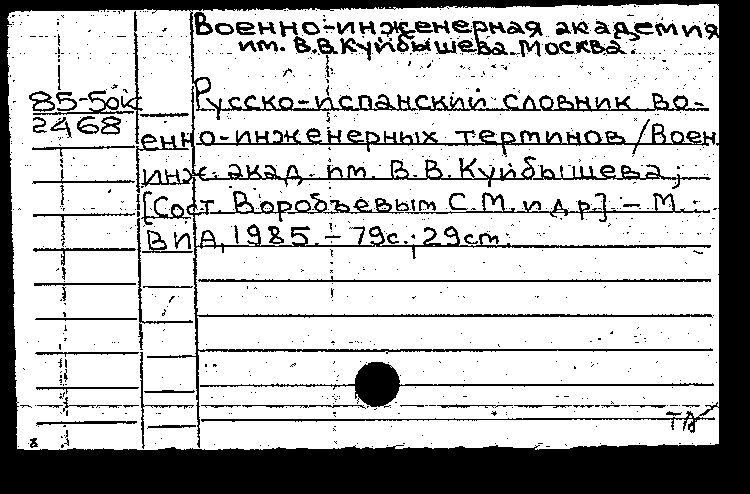 Военно-инженерная академия
им. В.В.Куйбышева. Москва.
85-50к
2468
Русско-испанский словник во-
енно-инженерных терминов /Воен.
инж. акад. им. В.В.Куйбышева;
[Сост. Воробъевым С.М. и др.] - М.:
ВИА, 1985. - 79с.; 29см.